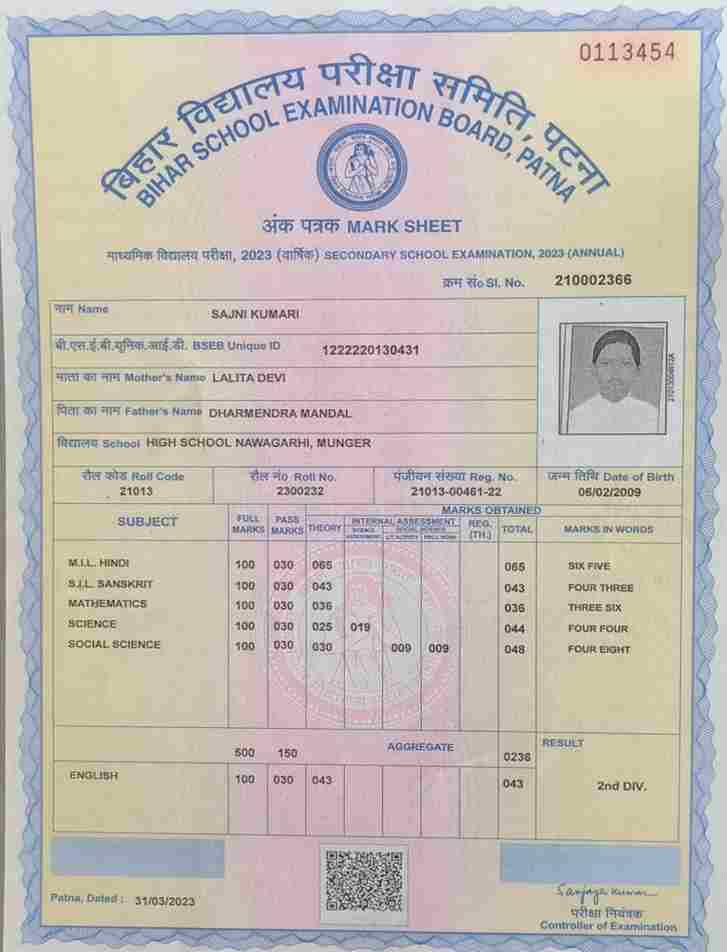 0113454
बिहार विद्यालय परीक्षा समिति, पटना
BIHAR SCHOOL EXAMINATION BOARD, PATNA
अंक पत्रक MARK SHEET
माध्यमिक विद्यालय परीक्षा, 2023 (वार्षिक) SECONDARY SCHOOL EXAMINATION, 2023 (ANNUAL)
क्रम सं० Sl. No. 210002366
नाम Name SAJNI KUMARI
बी.एस.ई.बी.यूनिक.आई.डी. BSEB Unique ID 1222220130431
माता का नाम Mother's Name LALITA DEVI
पिता का नाम Father's Name DHARMENDRA MANDAL
विद्यालय School HIGH SCHOOL NAWAGARHI, MUNGER
रौल कोड Roll Code रौल नं० Roll No. पंजीयन संख्या Reg. No. जन्म तिथि Date of Birth
21013 2300232 21013-00461-22 06/02/2009
MARKS OBTAINED
SUBJECT FULL MARKS PASS MARKS THEORY INTERNAL ASSESSMENT REG. (TH.) TOTAL MARKS IN WORDS
SCIENCE ASSESSMENT SOCIAL SCIENCE LIT. ACTIVITY PROJ. WORK
M.I.L. HINDI 100 030 065 065 SIX FIVE
S.I.L. SANSKRIT 100 030 043 043 FOUR THREE
MATHEMATICS 100 030 036 036 THREE SIX
SCIENCE 100 030 025 019 044 FOUR FOUR
SOCIAL SCIENCE 100 030 030 009 009 048 FOUR EIGHT
500 150 AGGREGATE 0236 RESULT
ENGLISH 100 030 043 043 2nd DIV.
Patna, Dated : 31/03/2023
Sanjaya Kumar
परीक्षा नियंत्रक
Controller of Examination